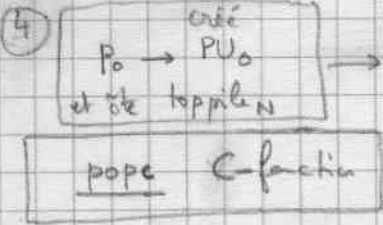 4
créé
P₀ → PU₀ →
et ôte toppile N
pope C-fonction